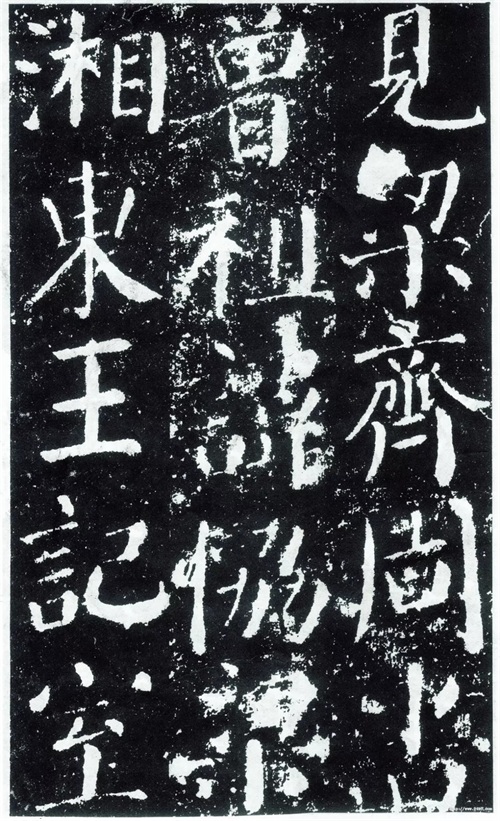 見梁齊周
曾祖諱恊梁
湘東王記室